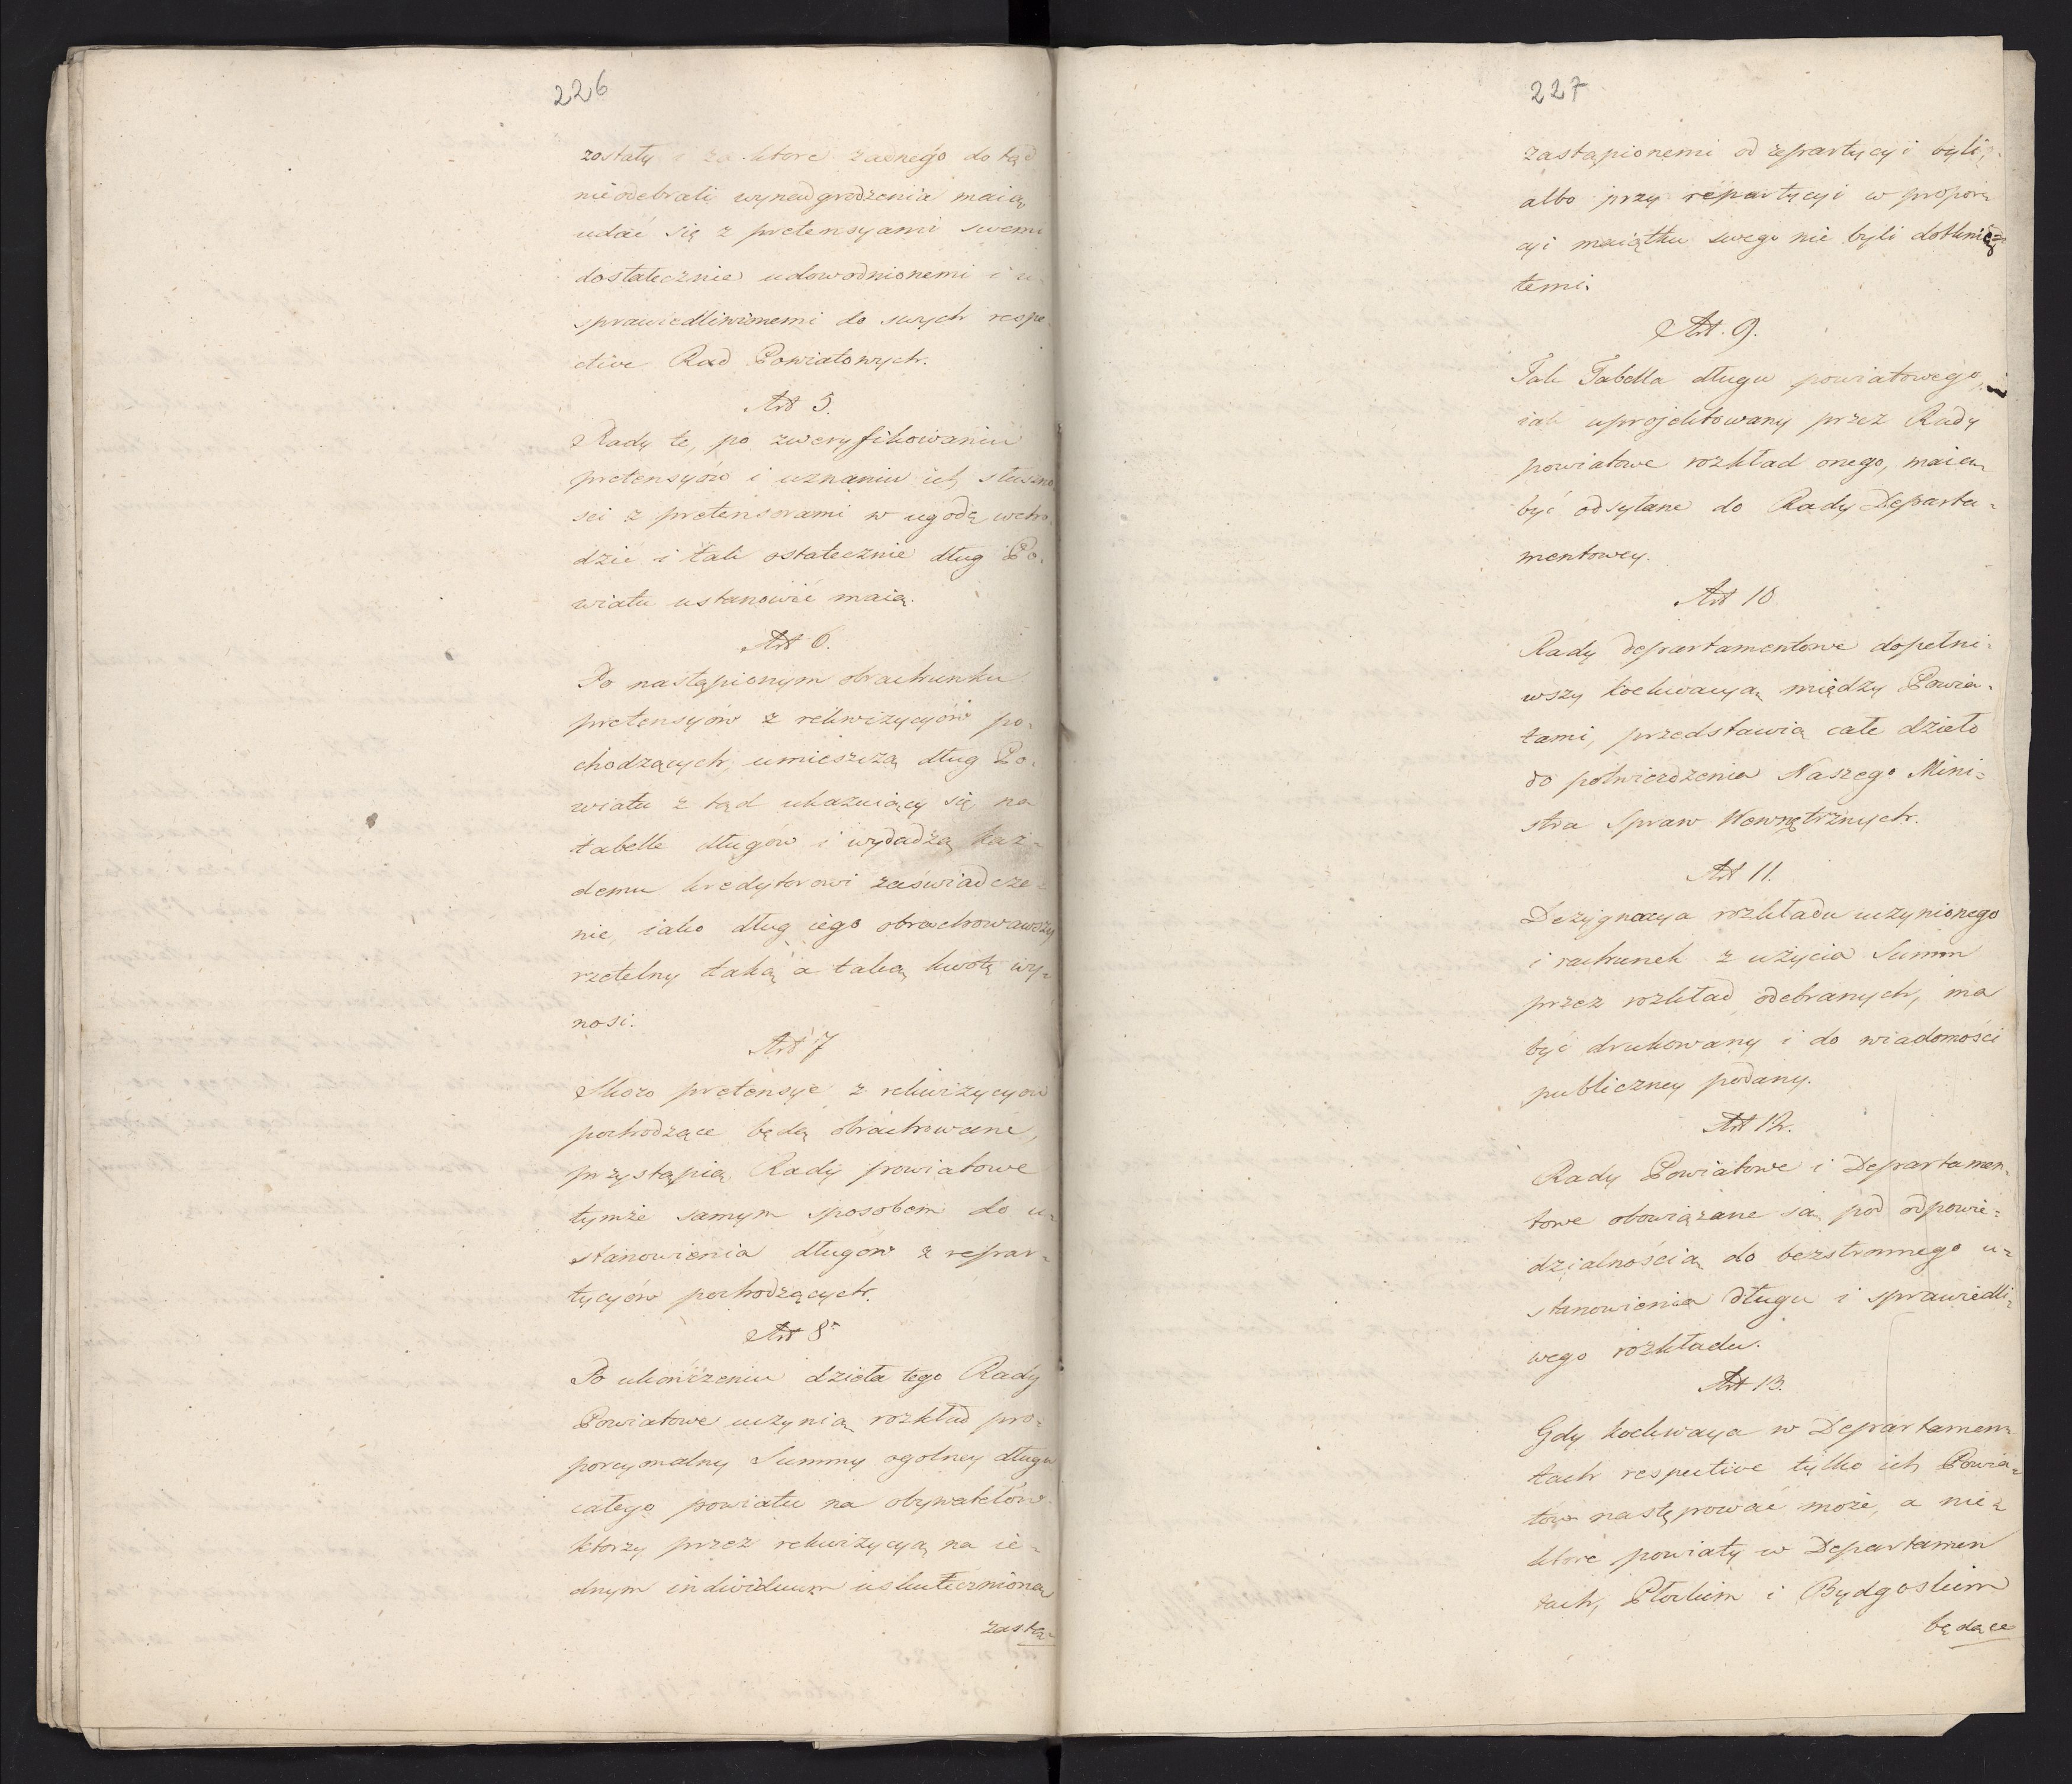 226
zostały i za ktore żadnego do tąd
nieodebrali wynadgrodzenia maią
udać się z pretensyami swemi
dostatecznie udowodnionemi i u-
sprawiedliwionemi do swych respe-
ctive Rad Powiatowych.
Art 5.
Rady te, po zweryfikowaniu
pretensyów i uznaniu ich słuszno
sci z pretensorami w ugodę wcho-
dzić i tak ostatecznie dług Po-
wiatu ustanowić maią.
Art 6.
Po nastąpionym obrachunku
pretensyów z rekwizycyów po-
chodzących, umieszczą dług Po-
wiatu z tąd ukazuiący się na
tabelle długów i wydadzą każ-
demu kredytorowi zaświadcze-
nie, iako dług iego obrachowawszy
rzetelny taką a taką kwotę wy-
nosi.
Art 7
Skoro pretensye z rekwizycyow
pochodzące będą obrachowane,
przystąpią Rady powiatowe
tymże samym sposobem do u-
stanowienia długów z repar-
tycyów pochodzących.
Art 8
Po ukończeniu dzieła tego Rady
Powiatowe uczynią rozkład pro-
porcyonalny Summy ogolney długu
całego powiatu na obywatelów
ktorzy przez rekwizycyą na ie-
dnym individuum uskutecznioną
zastą-
227
zastąpionemi od repartycyi byli,
albo przy repartycyi w propor-
cyi maiątku swego nie byli dotknię-
temi.
Art. 9.
Tak Tabella długu powiatowego,
iak uprojektowany przez Rady
powiatowe rozkład onego, maią
być odsyłane do Rady Departa-
mentowey.
Art 10
Rady departamentowe dopełni-
wszy koekwacyą między Powia-
tami, przedstawią całe dzieło
do potwierdzenia Naszego Mini-
stra Spraw Wewnętrznych.
Art 11.
Dezygnacya rozkładu uczynionego
i rachunek z użycia Summ
przez rozkład odebranych, ma
być drukowany i do wiadomości
publiczney podany.
Art 12.
Rady Powiatowe i Departamen-
towe obowiązane są pod odpowie-
dzialnością do bezstronnego u-
stanowienia długu i sprawiedli-
wego rozkładu.
Art 13.
Gdy koekwacya w Departamen-
tach respective tylko ich Powia-
tow następować może, a nie-
ktore powiaty w Departamen
tach, Płockim i Bydgoskim
będące